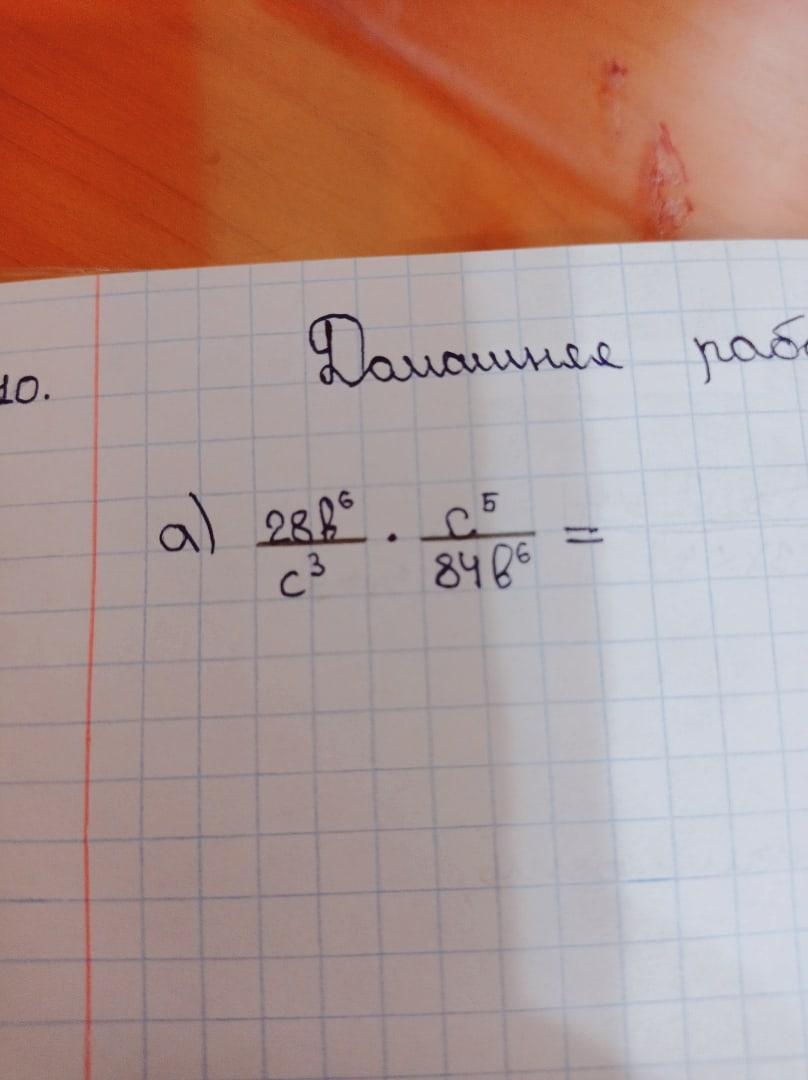 10.
Домашняя раб
а) 28b⁶/c³ · c⁵/84b⁶ =